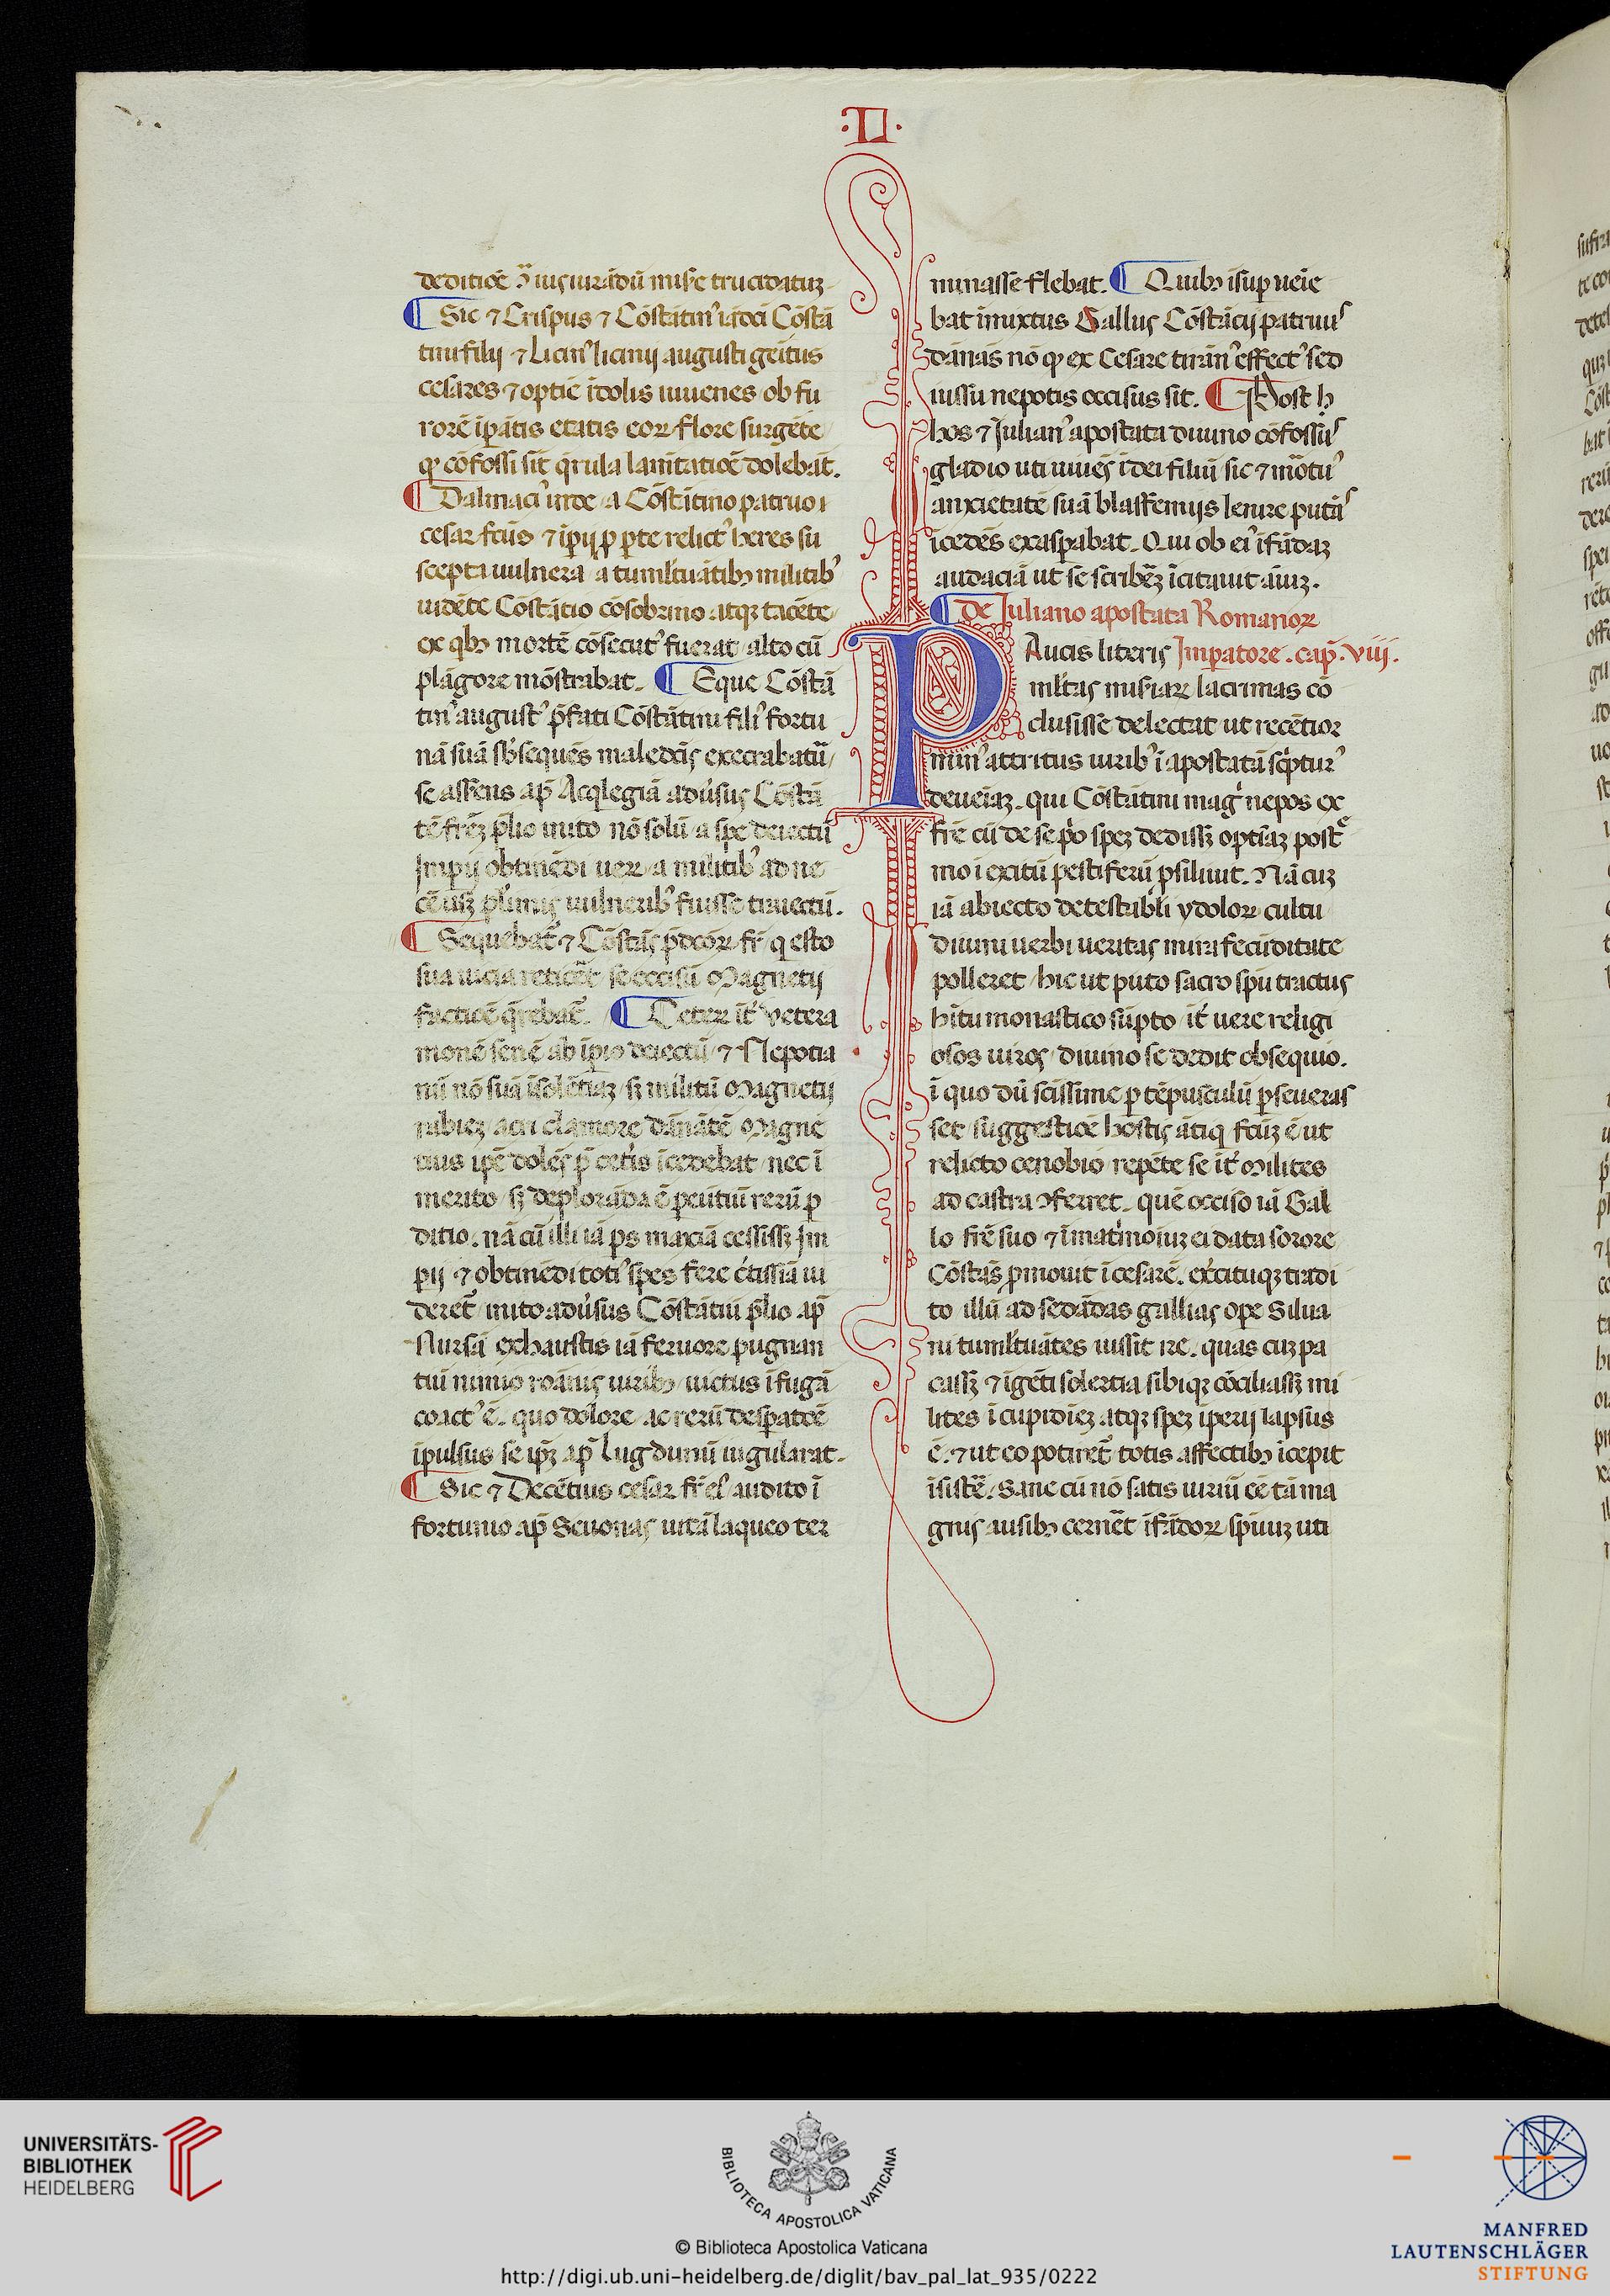 ·Ꞁꞁ·
deditiōē ɔ̄ iusiurādū misē trucidatuz
Sic ⁊ Crispus ⁊ Cōstātin᾽ iādci Cōstā
tini filii ⁊ Licin᾽ licinij augusti geītus
cesares ⁊ optiē īdolis iuuenes ob fu
rorē īpātis etatis eoꝝ flore surgēte
ꝙ cōfossi sīt qrula lanītatiōē dolebāt.
Dalmaci᾽ inde a Cōstātino patruo ī
cesar fctūs ⁊ īpij ꝓ ꝑte relict᾽ heres su
scepta uulnera a tumłtuātibꝫ militib᾽
uidēte Cōstātio cōsobrino atqꝫ tacēte
ex qbꝫ mortē cōsecut᾽ fuerat alto cū
plāgore mōstrabat. Eque Cōstā
tin᾽ august᾽ p̄fati Cōstātini fili᾽ fortu
nā suā sbsequēs maledcīs execrabatū
se assēns ap̄ Acqlegiā aduꝰsus Cōstā
tē frēꝫ p̄lio inito nō solū a spe deiectū
Imꝑij obtinēdi ueꝝ a militib᾽ ad ne
cē usqꝫ plīmis uulnerib᾽ fuisse traiectū.
Sequebat᾽ ⁊ Cōstās p̄dcōꝝ fr̄ q esto
sua uicia reticēt se occisū Magnetij
factiōē qrebat᾽. Ceteꝝ it᾽ vetera
monē senē ab īpio deiectū ⁊ Nepotia
nū nō suā īsolētiaꝫ sꝫ militū Magnetij
rabieꝫ acri clamore dānātē Magnē
tius ipē dolēs p̄ cetīs īcedebat nec ī
merito sꝫ deplorāda ē peūtiū rerū ꝑ
ditio. nā cū illi iā ps maxīa cessissꝫ Im
ꝑij ⁊ obtinēdi toti᾽ spes fere c̄tissīa ui
deret᾽ inito aduꝰsus Cōstātiū p̄lio ap̄
Nursā exhaustis iā feruore pugnan
tiū nimio roānis uiribꝫ uictus ī fugā
coact᾽ ē. quo dolore ac rerū desꝑatiōē
īpulsus se ipꝫ ap̄ Lugdunū iugularat.
Sic ⁊ Decētius cesar fr̄ ei᾽ audito ī
fortunio ap̄ Senonas uitā laqueo ter
minasse flebat. Quibꝫ īsuꝑ ueīe
bat inmixtus Gallus Cōstācij patruū
dānās nō ꝙ ex Cesare tirān᾽ effect᾽ sed
iussu nepotis occisus sit. Post h
hos ⁊ Iulian᾽ apostata diuino cōfossū
gladio uti uiuēs ī dei filiū sic ⁊ mōtu᾽
anxietatē suā blasfemijs lenire putās
īcedēs exasꝑabat. Qui ob ei᾽ īfādaꝫ
audaciā ut se scribēꝫ īcitauit aīuꝫ.
De Iuliano apostata Romanoꝝ
Imꝑatore. cap̄. viij.
PAucis literis
młtas misiaꝝ lacrimas cō
clusisse delectat ut recētior
min᾽ attritus uirib᾽ ī apostatā scptur᾽
deueīaꝫ. qui Cōstātini mag᾽ nepos ex
frē cū de se po speꝫ dedissꝫ optīaꝫ post᾽e
mo ī exitū pestiferū ꝓsiluit. Nā cuꝫ
iā abiecto detestabłi ydoloꝝ cultu
diuini uerbi ueritas mira fecūditate
polleret hic ut puto sacro spū tractus
hītu monastico sūpto īt᾽ uere religi
osos uiros diuino se dedit obsequio.
ī quo dū scissime ꝑ tēpusculū ꝑseueras
set suggestiōē hostis ātiq fctūꝫ ē ut
relicto cenobio repēte se īt᾽ Milites
ad castra ꝯferret. quē occiso iā Gal
lo frē suo ⁊ ī matīmoiuꝫ ei data sorore
Cōstās ꝓmouit ī cesarē. exc̄ituqꝫ tradi
to illū ad sedādas gallias ope Silua
ni tumłtuātes iussit ire. quas cuꝫ pa
cassꝫ ⁊ īgēti solertia sibiqꝫ cōciliassꝫ mi
lites ī cupidieꝫ atqꝫ speꝫ īperij lapsus
ē. ⁊ ut eo potiret᾽ totis affectibꝫ īcepit
īsistē. Sane cū nō satis uiriū cē tā ma
gnis ausibꝫ cernēt īfādoꝝ spūuꝫ uti
UNIVERSITÄTS-
BIBLIOTHEK
HEIDELBERG
BIBLIOTECA APOSTOLICA VATICANA
© Biblioteca Apostolica Vaticana
http://digi.ub.uni-heidelberg.de/diglit/bav_pal_lat_935/0222
MANFRED
LAUTENSCHLÄGER
STIFTUNG